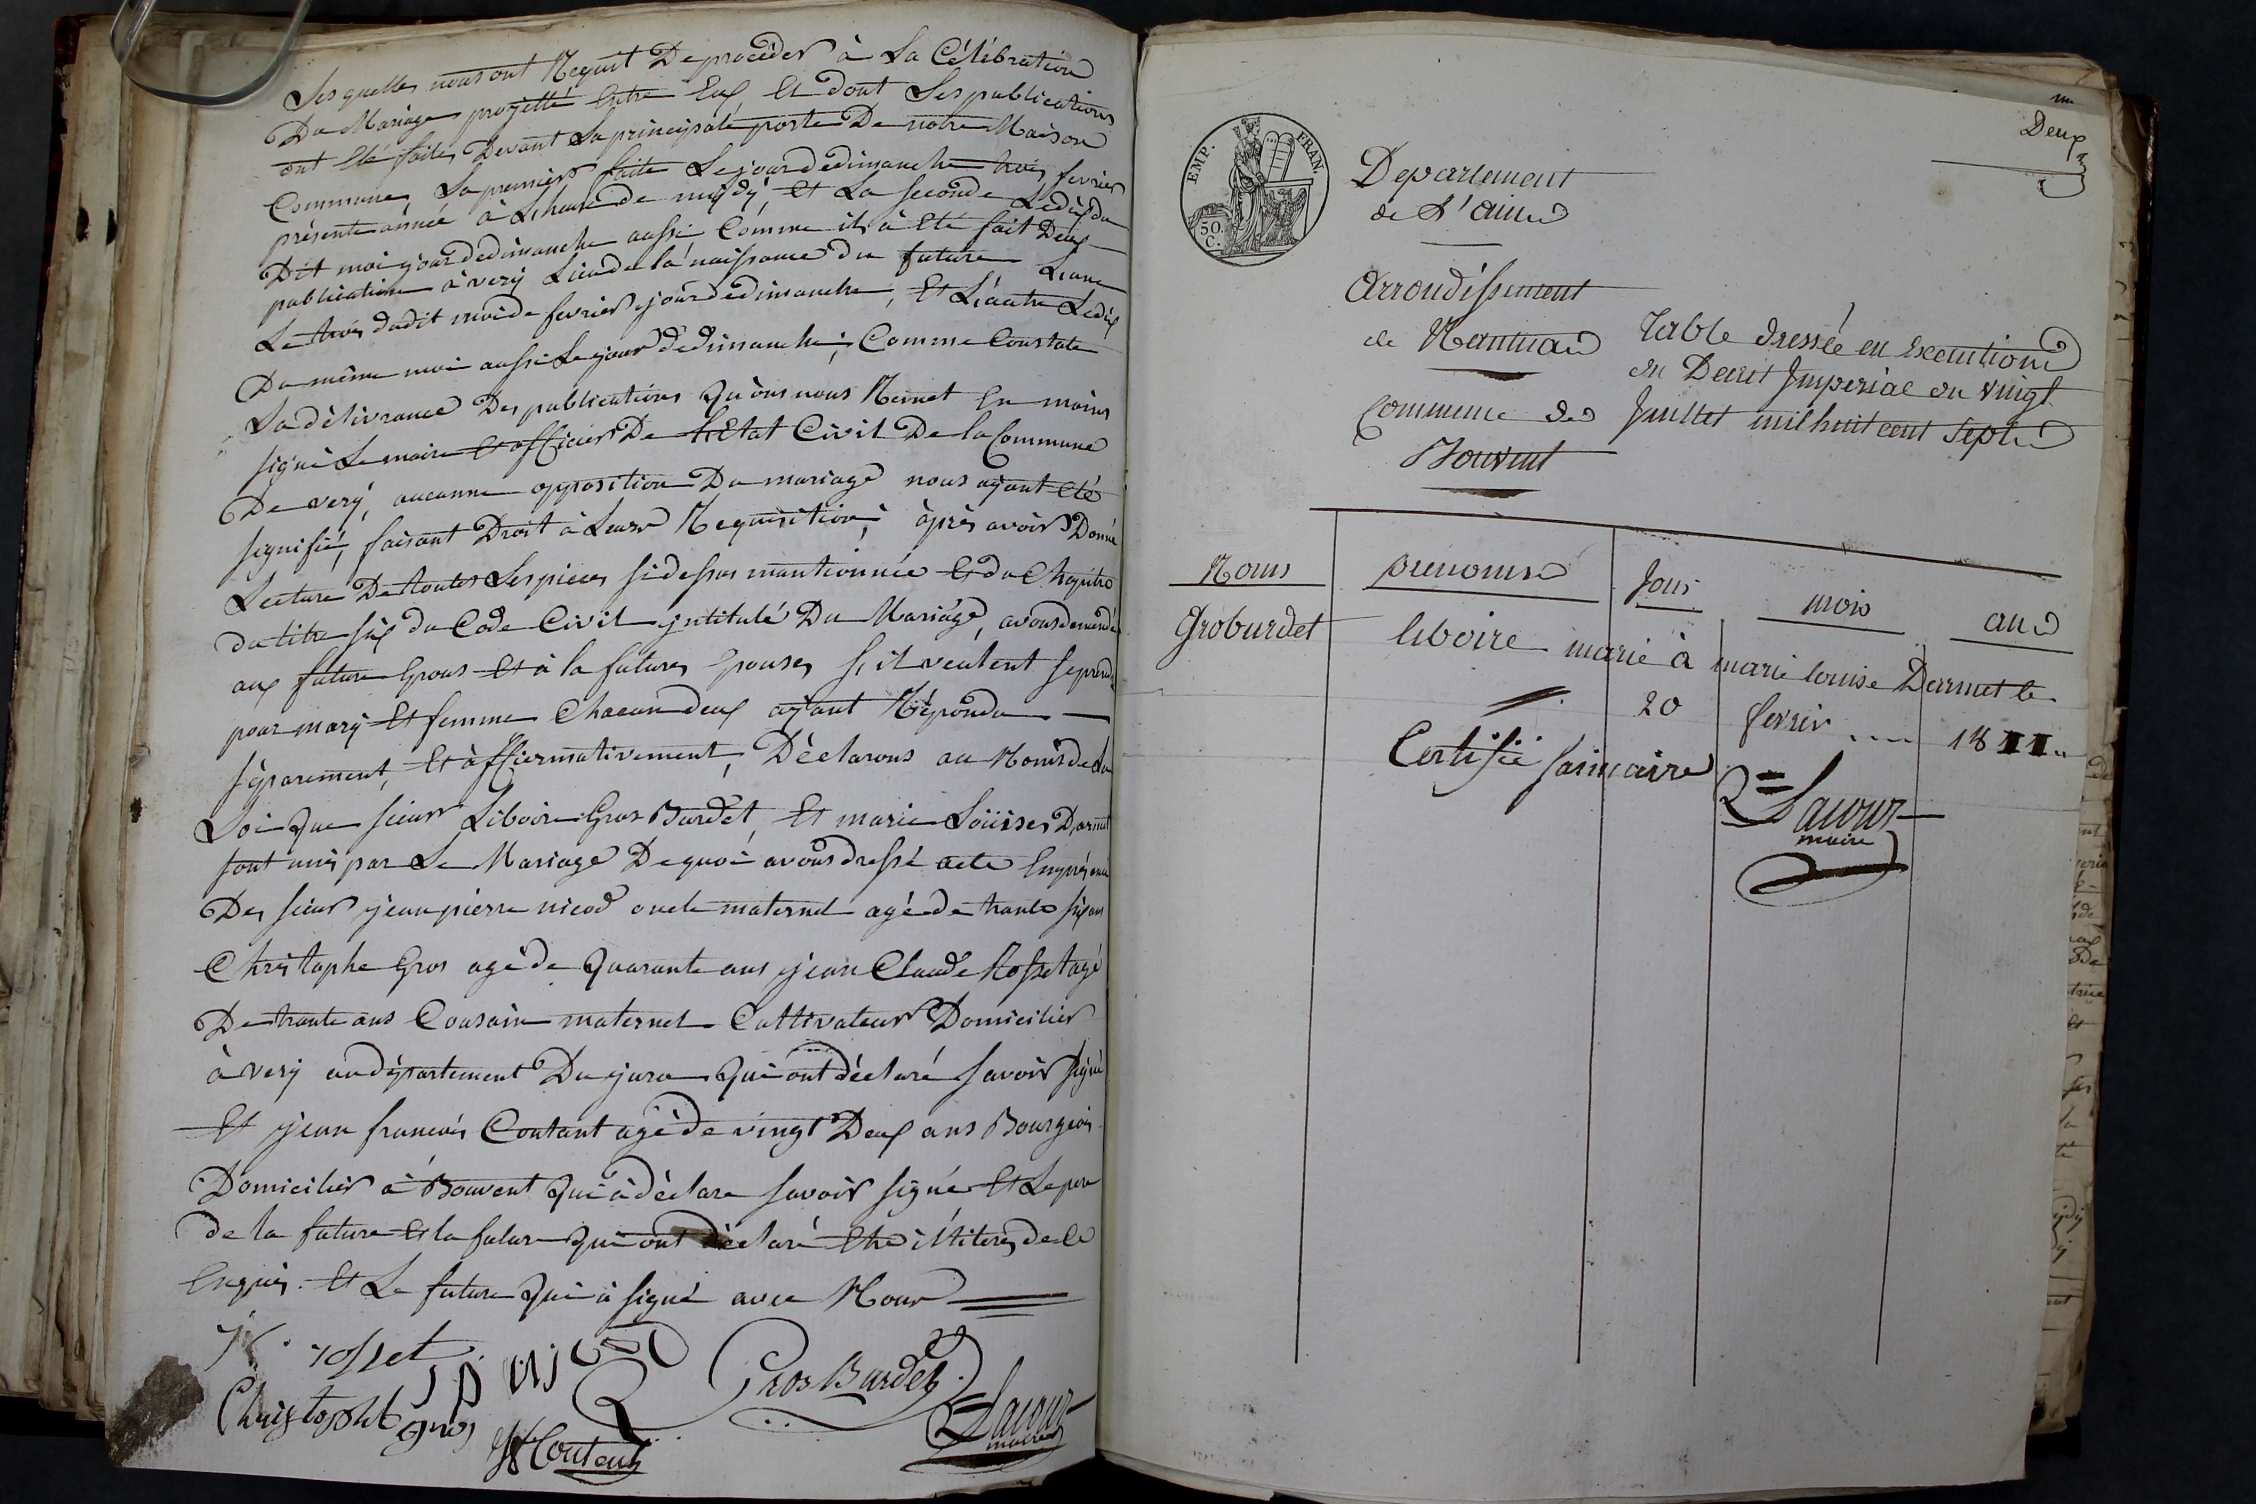 Les quelles nous ont Requit De procèder à La Célébration
Du Mariage projetté Entre Eux, Et dont Les publications
ont Eté faites Devant La principale porte De notre Maison
Commune, La premiere faite Le jour dedimanche trois fevrier
présente année à L'heure de mydÿ, Et La seconde Ledix du
Dit moi jour dedimanche aussi Comme il à Eté fait Deux
publication à verÿ Lieu de la naissance du future L'une
Le trois dudit moi de fevrier jour dedimanche, Et L'autre Ledix
Du même moi aussi Le jour dedimanche, Comme Constate
La dèlivrance Des publications Qu'ons nous Remet En moins
signé Le maire Et officier De L'Etat Civil De la Commune
De verÿ, aucunne opposition Du mariage nous aÿant Eté
signifié, faisant Droit à Leur Requisition, àprès avoir Donné
Lecture De toutes Les pieces si dessus mantionnée Et du Chapitre
du titre six du Code Civil intitulé Du Mariage, avons demandé
aux future Epous Et à la future Epouse, s'il veulent seprendre
pour marÿ Et femme Chacun deux aÿant Répondu
séparement, Et àffiermativement, Dèclarons au Nom de La
Loi Que sieur Liboire Gros Burdet, Et marie Loüise Darmet
sont unis par Le Mariage De quoi avons dressé acte En présence
Des sieur jean pierre nicod oncle maternel agé de trante six ans
Christophe Gros agé de Quarante ans jean Claude Rosset agé
De trante ans Cousain maternel Cultivateur Domicilier
à verÿ au département Du jura Qui ont déclaré savoir signé
Et jean francois Coutant agé de vingt Deux ans Bourgeois
Domicilier à Bouvent Qui à dèclare savoir signé Et Le pere
de la future Et la future Qui ont dèclaré Etre illiteres de Ce
Enquis. Et Le future Qui à signé avec Nous
rosset
J P Nicod
Gros Burdet
Christophe gros
Coutant
Lacour
maire
EMP. FRAN.
50. C.
Deux
Departement
de L'ain
Arrondissement
de Nantua
Table dressée en Execution
du Decret Imperial du vingt
Commune de
Juillet mil huit cent sept
Bouvent
Noms prenoms Jour mois an
Groburdet liboire marié à marie louise Darmet le
20 fevrier 1811
Certifié
Lacour
maire